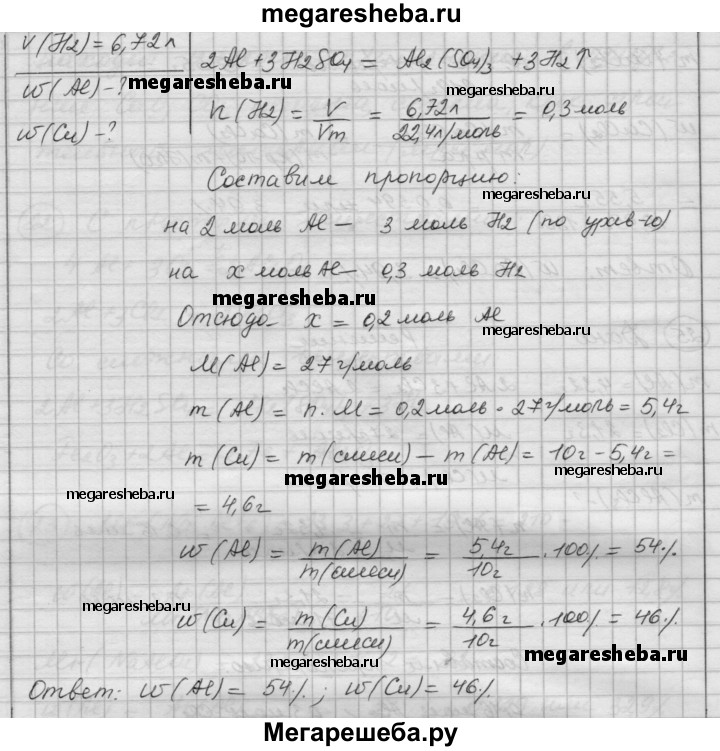 megaresheba.ru
V(H2) = 6,72 л
2Al + 3H2SO4 = Al2(SO4)3 + 3H2↑
w(Al) - ?
megaresheba.ru
w(Cu) - ?
n(H2) = V/Vm = 6,72л/22,4л/моль = 0,3 моль
Составим пропорцию:
megaresheba.ru
на 2 моль Al — 3 моль H2 (по урав-ю)
на x моль Al — 0,3 моль H2
megaresheba.ru
Отсюда x = 0,2 моль Al
megaresheba.ru
M(Al) = 27 г/моль
m(Al) = n · M = 0,2 моль · 27 г/моль = 5,4г
m(Cu) = m(смеси) - m(Al) = 10г - 5,4г =
megaresheba.ru
megaresheba.ru
megaresheba.ru
= 4,6г
w(Al) = m(Al)/m(смеси) = 5,4г/10г · 100% = 54%
megaresheba.ru
w(Cu) = m(Cu)/m(смеси) = 4,6г/10г · 100% = 46%
megaresheba.ru
megaresheba.ru
Ответ: w(Al) = 54%; w(Cu) = 46%
Мегарешеба.ру